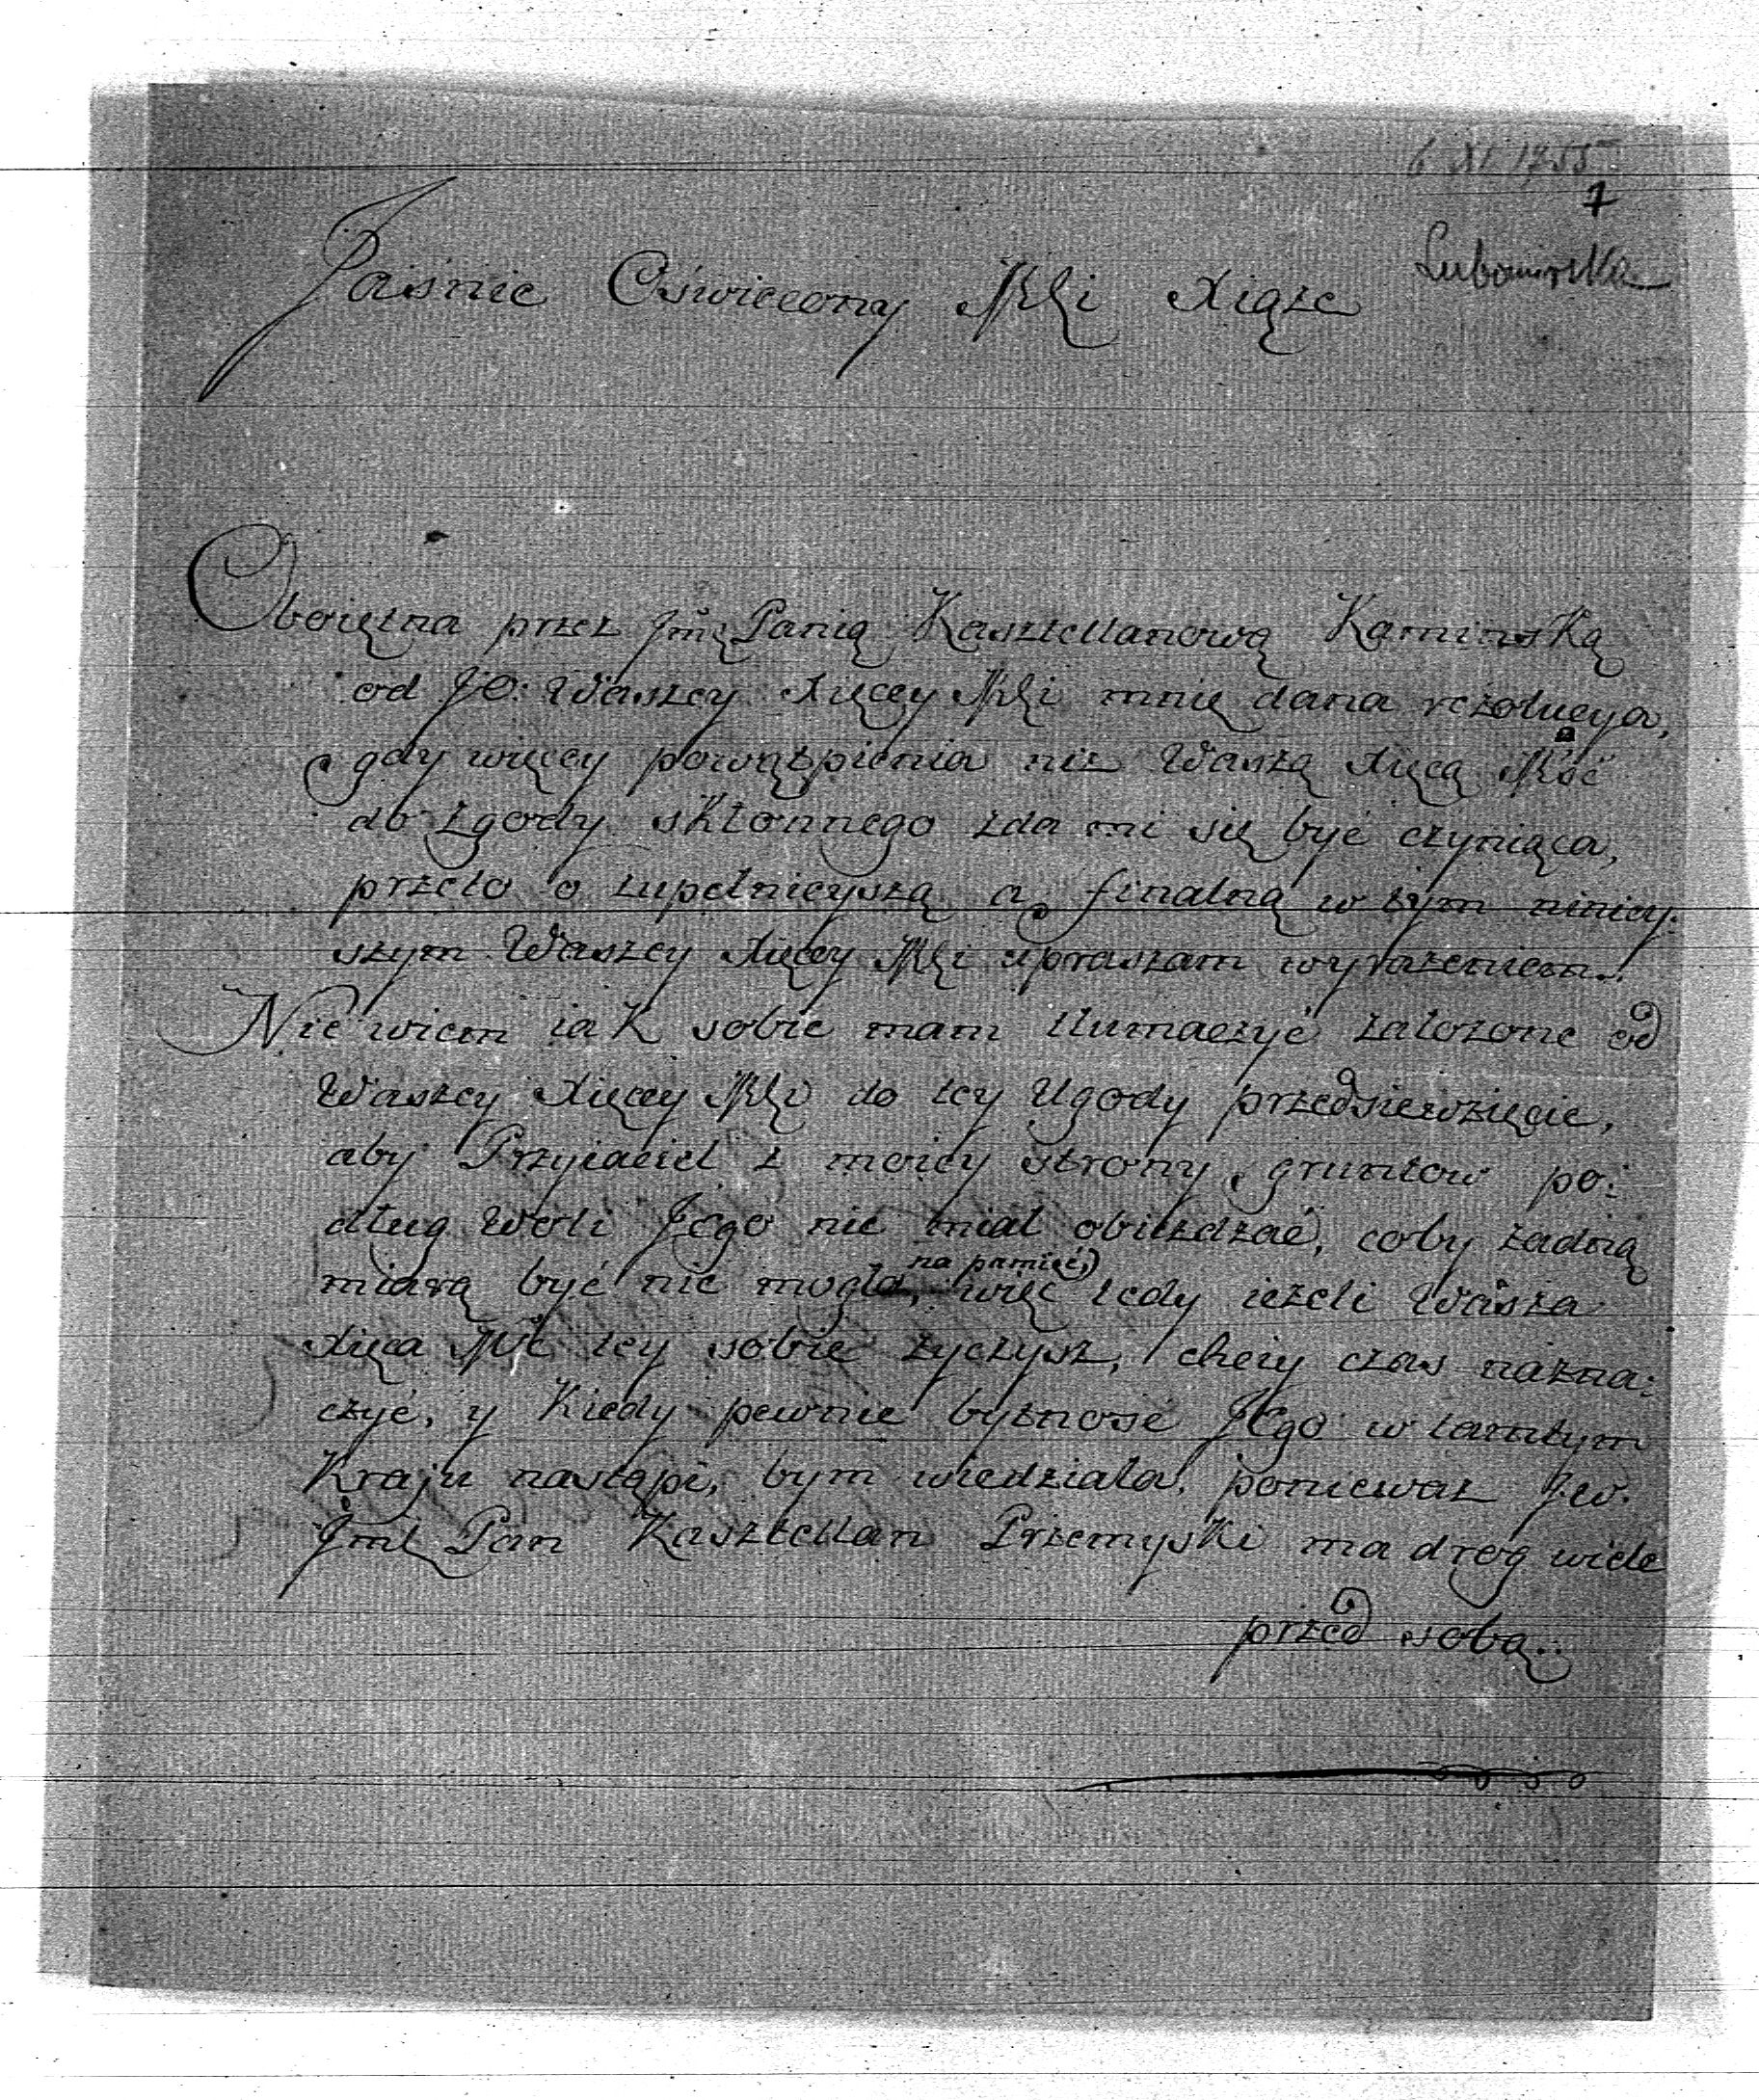 6 XI 1755
7
Lubomirska
Jaśnie Oświecony Mći Xiąże
Oboiętna przez Jmć Panią Kasztellanową Kaminską
od JO: Waszey Xięcey Mći mnie dana rezolucya,
gdy więcey powątpienia niż Waszą Xięcą Mść
do zgody skłonnego zda mi się być czyniąca,
przeto o zupełnieyszą a finalną w tym niniey:
szym Waszey Xięcey Mći upraszam wyrażeniem.
Nie wiem iak sobie mam tłumaczyć założone od
Waszey Xięcey Mći do tey Ugody przedsiewzięcie,
aby Przyiaciel z moiey strony gruntow po:
dług Woli Jego nie miał obieżdżać, coby żadną
na pamięć,
miarą być nie mogło, więc tedy ieżeli Wasza
Xięca Mć tey sobie życzysz, chciey czas nazna:
czyć, y Kiedy pewnie bytność JEgo w tamtym
Kraju nastąpi, bym wiedziała, ponieważ Jw.
Jmć Pan Kasztellan Przemyski ma drog wiele
przed sobą.